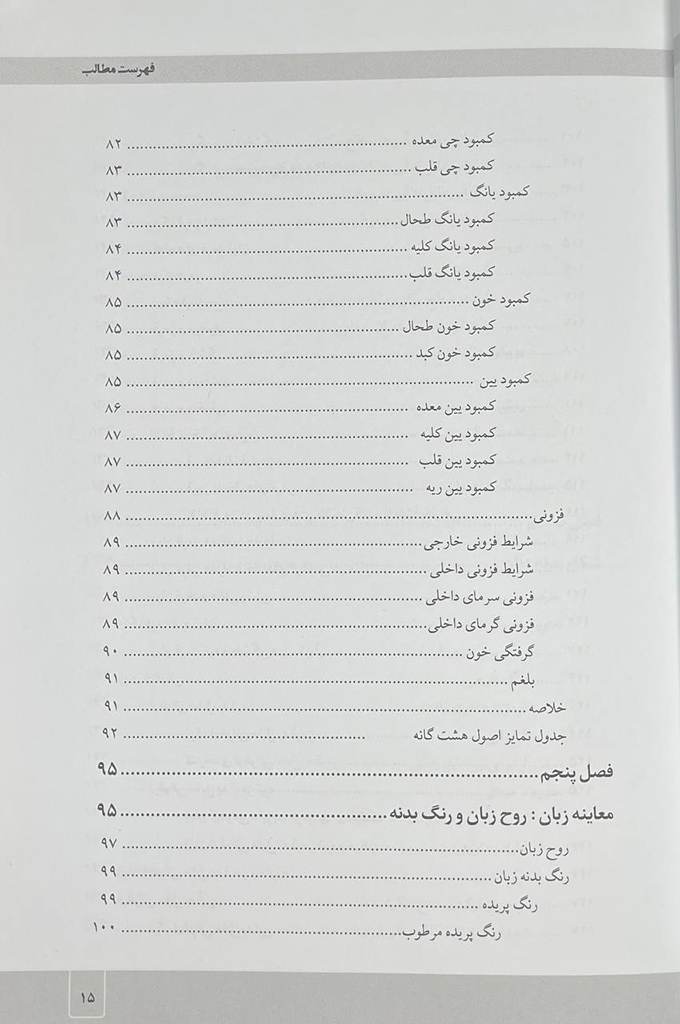 فهرست مطالب
کمبود چی معده ........ ۸۲
کمبود چی قلب ........ ۸۳
کمبود یانگ ........ ۸۳
کمبود یانگ طحال ........ ۸۳
کمبود یانگ کلیه ........ ۸۴
کمبود یانگ قلب ........ ۸۴
کمبود خون ........ ۸۵
کمبود خون طحال ........ ۸۵
کمبود خون کبد ........ ۸۵
کمبود یین ........ ۸۵
کمبود یین معده ........ ۸۶
کمبود یین کلیه ........ ۸۷
کمبود یین قلب ........ ۸۷
کمبود یین ریه ........ ۸۷
فزونی ........ ۸۸
شرایط فزونی خارجی ........ ۸۹
شرایط فزونی داخلی ........ ۸۹
فزونی سرمای داخلی ........ ۸۹
فزونی گرمای داخلی ........ ۸۹
گرفتگی خون ........ ۹۰
بلغم ........ ۹۱
خلاصه ........ ۹۱
جدول تمایز اصول هشت گانه ........ ۹۲
فصل پنجم ........ ۹۵
معاینه زبان : روح زبان و رنگ بدنه ........ ۹۵
روح زبان ........ ۹۷
رنگ بدنه زبان ........ ۹۹
رنگ پریده ........ ۹۹
رنگ پریده مرطوب ........ ۱۰۰
۱۵